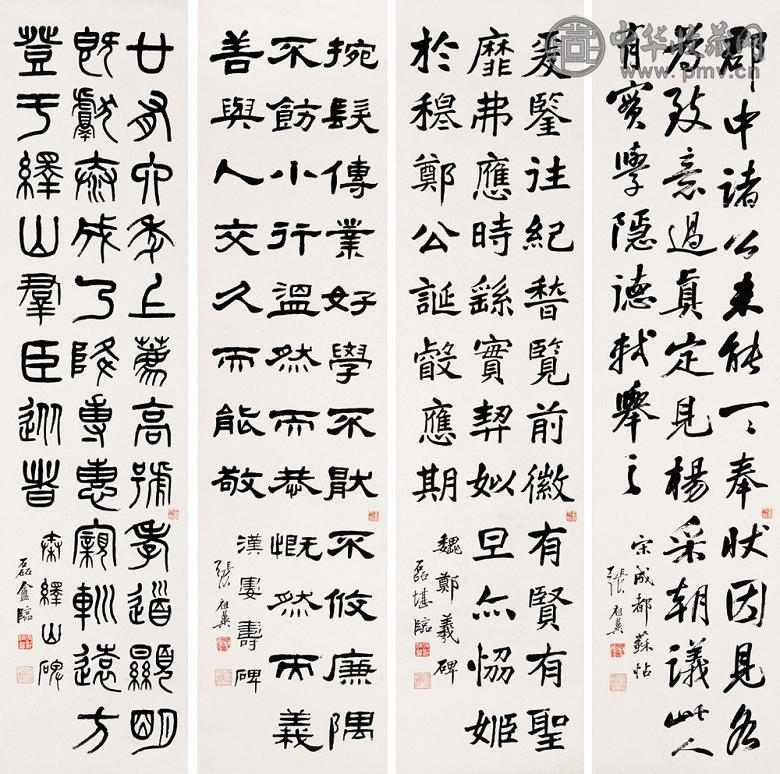 中华收藏网
www.pmv.cn
郡中諸公未能一々奉狀因見各
為致意過真定見楊采朝議此人
有實學隱德軾舉之
宋成都蘇帖
張祖翼
爰鑒往紀稽覽前徽有賢有聖
靡弗應時繇實契姒旦亦協姬
於穆鄭公誕叡應期
魏鄭羲碑
磊堪臨
捥髮傳業好學不猒不攸廉隅
不飭小行溫然而恭慨然而義
善與人交久而能敬
漢婁壽碑
張祖翼
廿有六年上薦高號孝道顯明
既獻泰成乃降專惠寴巡遠方
登于繹山羣臣從者
秦繹山碑
磊盦臨